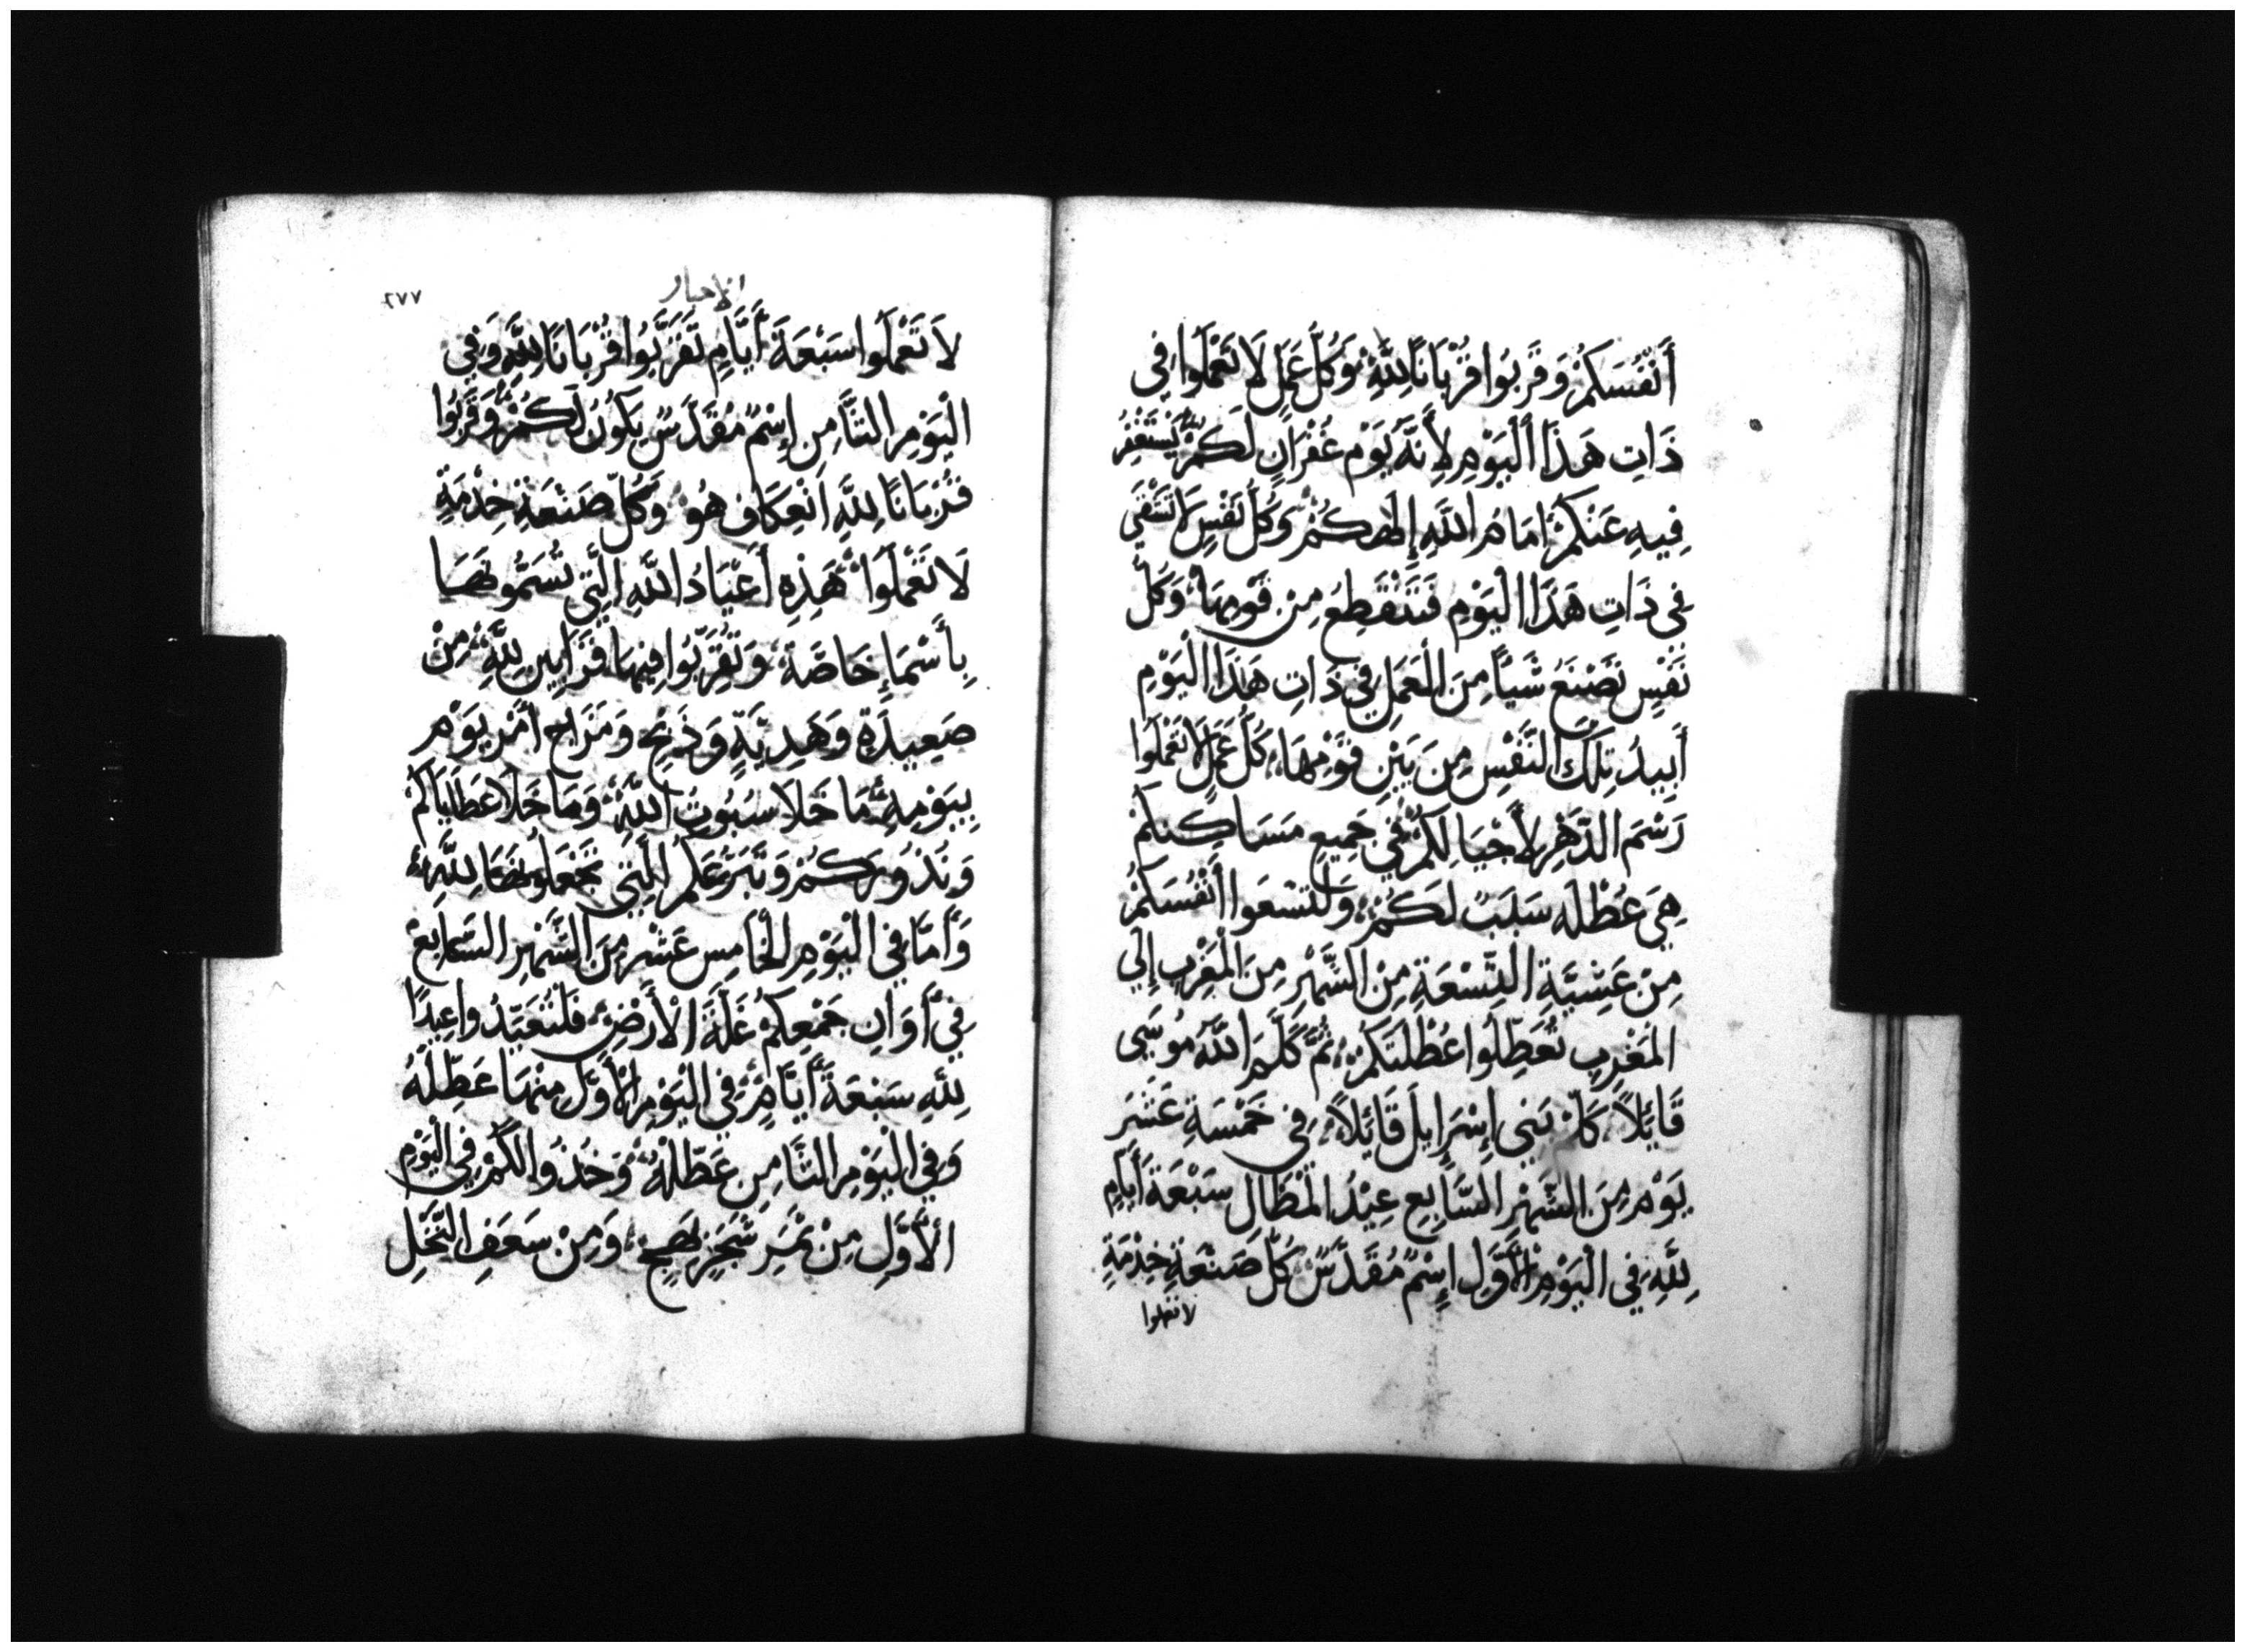 أَنْفُسَكُمْ وَقَرِّبُوا قُرْبَانًا لِلَّهِ وَكُلَّ عَمَلٍ لَا تَعْمَلُوا فِي
ذَاتِ هَذَا الْيَوْمِ لِأَنَّهُ يَوْمُ غُفْرَانٍ لَكُمْ يَسْتَغْفِرُ
فِيهِ عَنْكُمْ امَامَ اللَّهِ إِلَهِكُمْ وَكُلُّ نَفْسٍ لَا تَشْقَى
فِي ذَاتِ هَذَا الْيَوْمِ فَتَنْقَطِعُ مِنْ قَوْمِهَا وَكُلُّ
نَفْسٍ تَصْنَعُ شَيْأً مِنَ الْعَمَلِ فِي ذَاتِ هَذَا الْيَوْمِ
أُبِيدُ تِلْكَ النَّفْسَ مِنْ بَيْنِ قَوْمِهَا كُلَّ عَمَلٍ لَا تَعْمَلُوا
رَسْمَ الدَّهْرِ لِأَجْيَالِكُمْ فِي جَمِيعِ مَسَاكِنِكُمْ
هِيَ عُطْلَةُ سَبَتٍ لَكُمْ وَلْتَسْعَوا أَنْفُسَكُمْ
مِنْ عَشِيَّةِ التِّسْعَةِ مِنَ الشَّهْرِ مِنَ الْمَغْرِبِ إِلَى
الْمَغْرِبِ تُعَطِّلُوا عُطْلَتَكُمْ ثُمَّ كَلَّمَ اللَّهُ مُوسَى
قَائِلاً كَلِّمْ بَنِي إِسْرَايِلَ قَائِلاً فِي خَمْسَةِ عَشَرَ
يَوْم مِنَ الشَّهْرِ السَّابِعِ عِيْدُ الْمَظَالِ سَبْعَةَ أَيَّامٍ
لِلَّهِ فِي الْيَوْمِ الْأَوَّلِ إِسْمٌ مُقَدَّسٌ كُلَّ صَنْعَةِ خِدْمَةٍ
لا تعملوا
الاحبار
٧٧٦
لَا تَعْمَلُوا سَبْعَةَ أَيَّامٍ تَقَرَّبُوا قُرْبَانًا لِلَّهِ وَفِي
الْيَوْمِ الثَّامِنِ إِسْمٌ مُقَدَّسٌ يَكُونُ لَكُمْ وَقَرِّبُوا
قُرْبَانًا لِلَّهِ انْعِكَاف هُوَ وَكُلَّ صَنْعَةِ خِدْمَةٍ
لَا تَعْمَلُوا هَذِهِ أَعْيَادُ اللَّهِ الَّتِي تُسَمُّونَهَا
بِأَسْمَاءٍ خَاصَّةٍ وَتُقَرِّبُوا فِيهَا قَرَابِينَ لِلَّهِ مِنْ
صَعِيدَةٍ وَهَدِيَّةٍ وَذَبْحٍ وَمَزَاج أَمْرُ يَوْمٍ
بِيَوْمِهِ مَا خَلَا سُبُوتِ اللَّهِ وَمَا خَلَا عَطَايَاكُمْ
وَنُذُورِكُمْ وَتَبَرُّعِكُمْ الَّتِي تَجْعَلُونَهَا لِلَّهِ
وَأَمَّا فِي الْيَوْمِ الْخَامِس عَشْرَ مِنَ الشَّهْرِ السَّابِعْ
فِي أَوَانِ جَمْعِكُمْ غَلَّةَ الْأَرْضِ فَلْتُعَيِّدُوا عِيدًا
لِلَّهِ سَبْعَةَ أَيَّامٍ فِي الْيَوْمِ الْأَوَّلِ مِنْهَا عَطِّلَهُ
وَفِي الْيَوْمِ الثَّامِنِ عَطِّلْهُ وَخُذُوا لَكُمْ فِي الْيَوْمِ
الْأَوَّلِ مِنْ ثَمَرِ شَجَرٍ بَهِجٍ وَمِنْ سَعَفِ النَّخْلِ